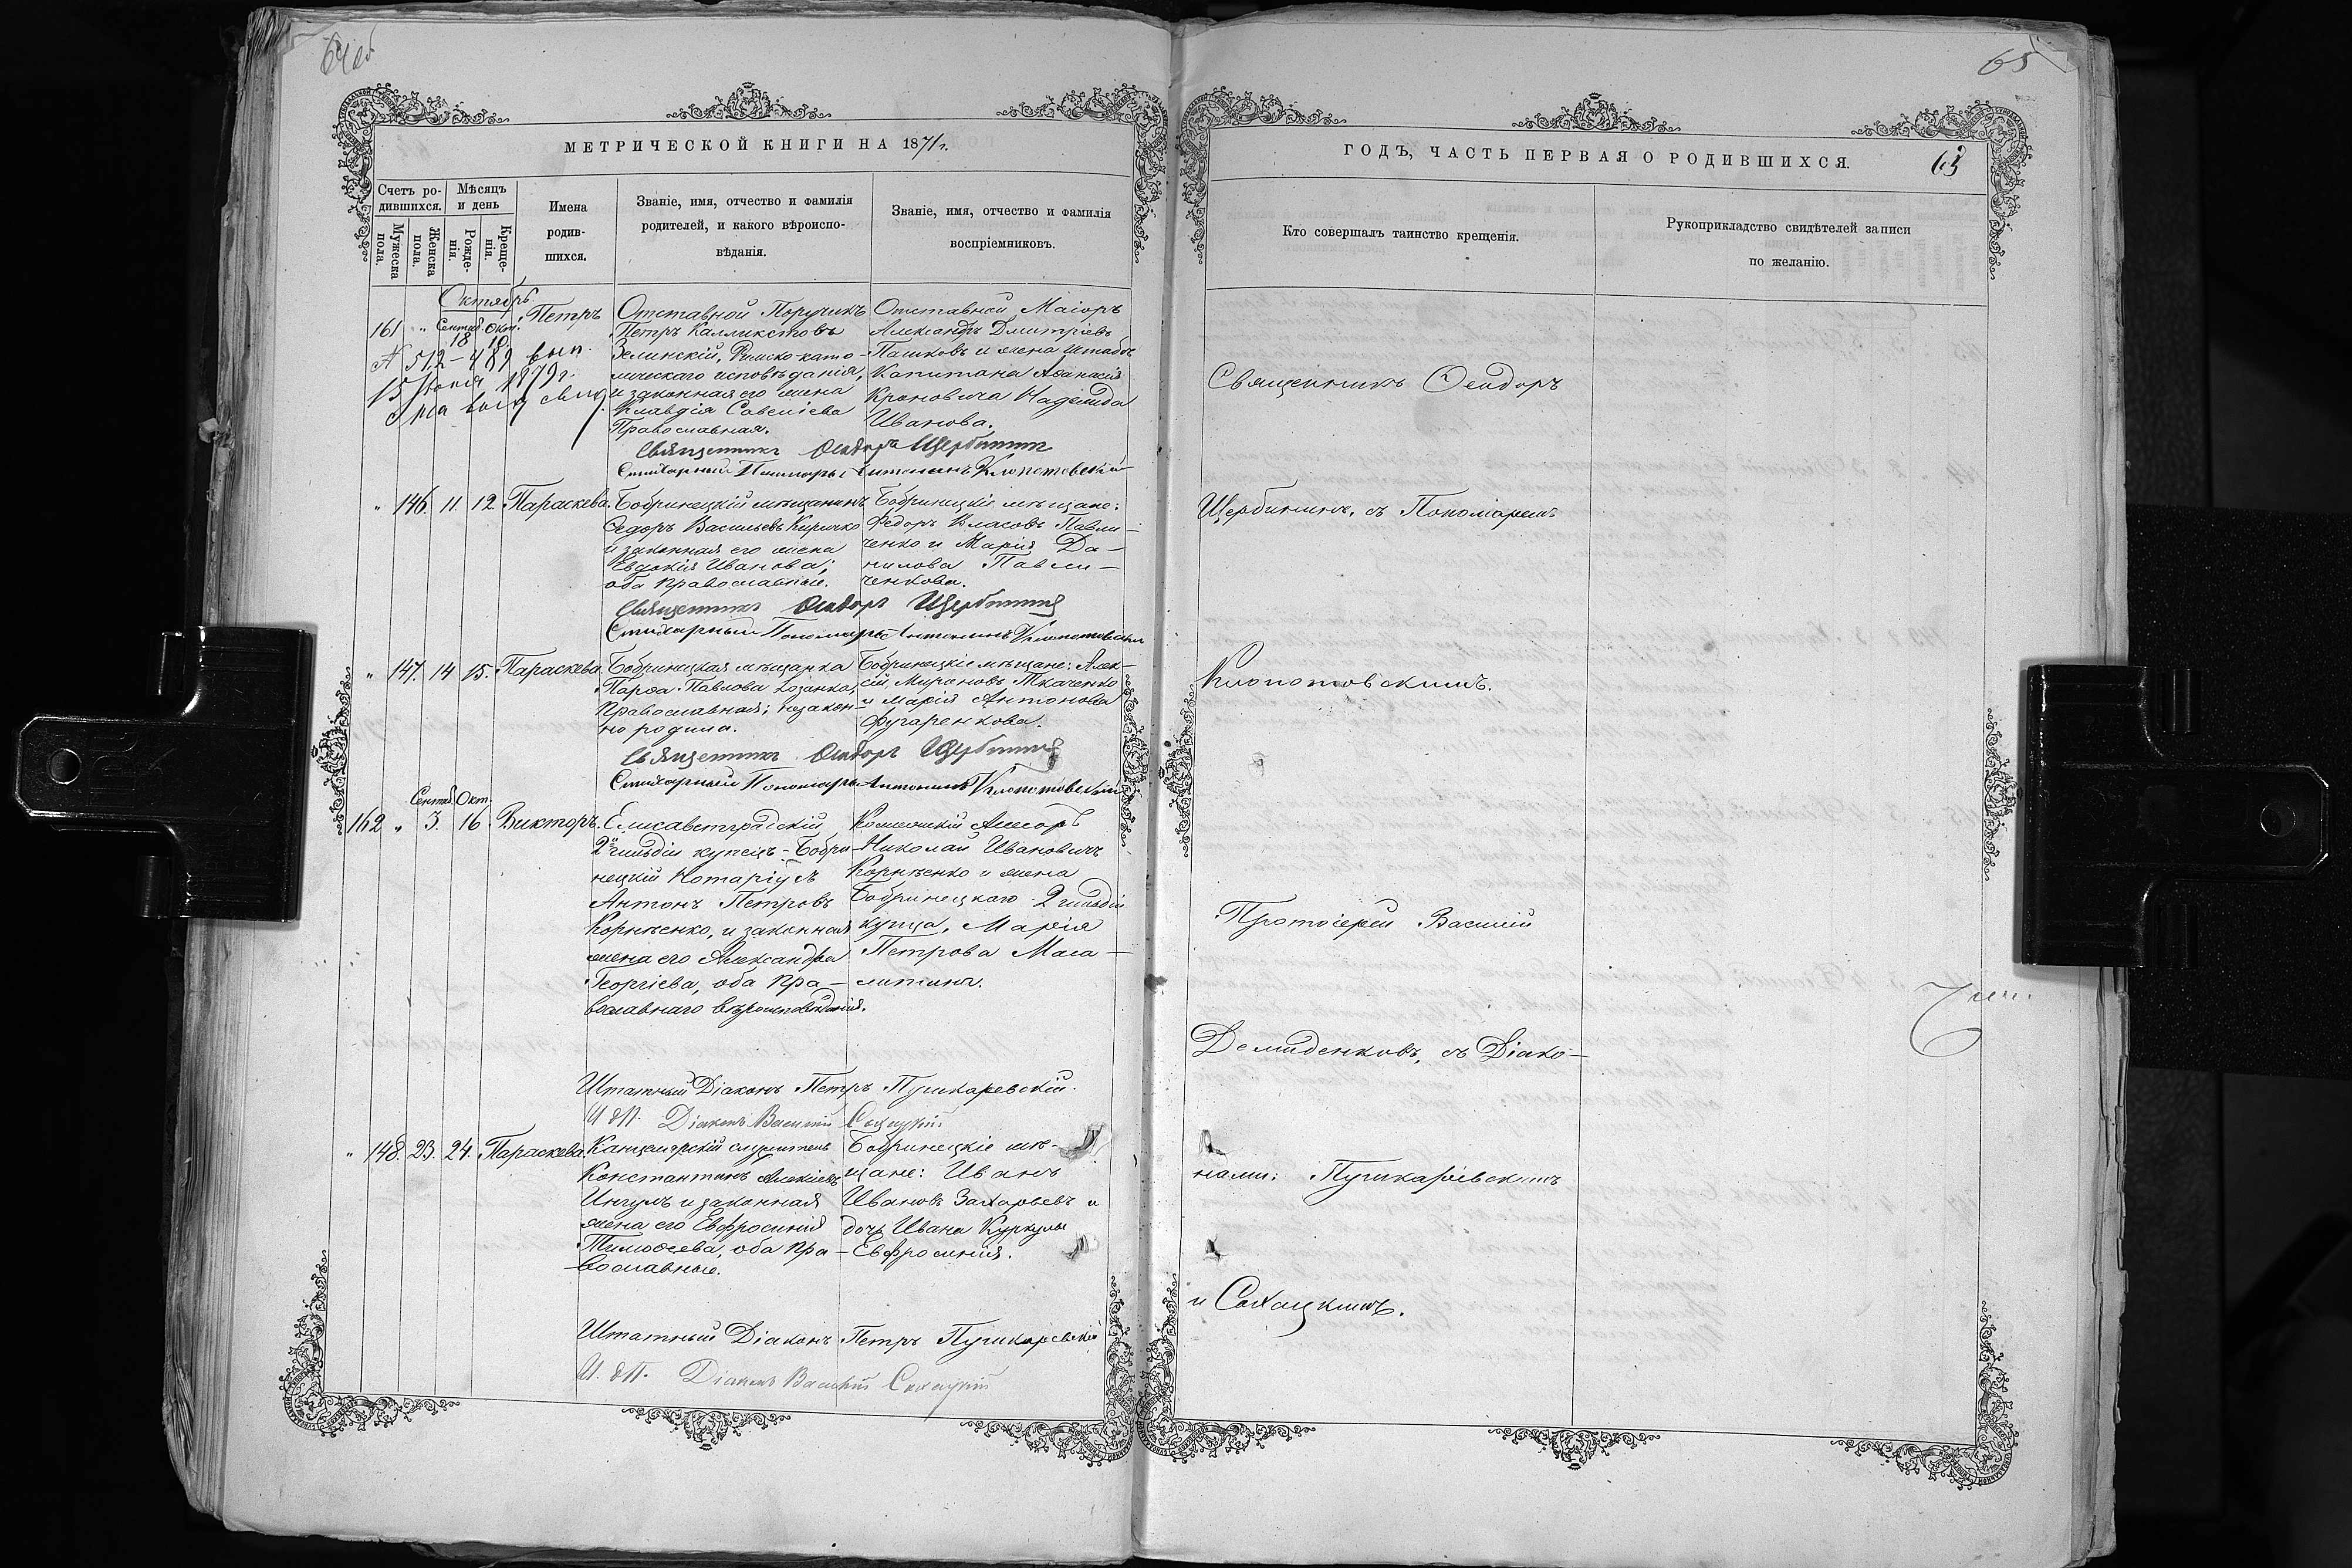 64 об
МЕТРИЧЕСКОЙ КНИГИ НА 1871 г.
Счетъ ро-
дившихся.
Мѣсяцъ
и день
Мужеска
пола.
Женска
пола.
Рожде-
нія.
Креще-
нія.
Имена
родив-
шихся.
Званіе, имя, отчество и фамилія
родителей, и какого вѣроиспо-
вѣданія.
Званіе, имя, отчество и фамилія
воспріемниковъ.
Октябрь.
161 " Сентяб. 18 Окт. 10. Петръ
N 512 - 489 вып.
15 1879 г.
Отставной Поручикъ
Петръ Калликстовъ
Зелинскій, Римско-като-
лическаго исповѣданія,
и законная его жена
Клавдія Савеліева
Православная.
Отставной Маіоръ
Александръ Дмитріевъ
Пашковъ и жена Штабсъ
Капитана Аѳанасія
Кроновича Надежда
Иванова.
Священникъ Ѳеодоръ Щербининъ
Стихарный Пономарь Антонинъ Клопотовскій
" 146. 11 12 Параскева.
Бобринецкій мѣщанинъ
Ѳедоръ Васильевъ Киричко
и законная его жена
Евдокія Иванова;
оба православные.
Бобринецкіе мѣщане:
Ѳедоръ Власовъ Павли-
ченко и Марія Да-
нилова Павли-
ченкова.
Священникъ Ѳеодоръ Щербининъ
Стихарный Пономарь Антонинъ Клопотовскій
" 147. 14 15. Параскева
Бобринецкая мѣщанка
Параск. Павлова Козанка,
Православная; незакон-
но родила.
Бобринецкіе мѣщане: Алек-
сій Мироновъ Ткаченко
и Марія Антонова
Фугаренкова.
Священникъ Ѳеодоръ Щербининъ
Стихарный Пономарь Антонинъ Клопотовскій
Сентяб. Окт.
162 " 3. 16. Викторъ.
Елисаветградскій
2й гильдіи купецъ - Бобри-
нецкій Нотаріусъ
Антонъ Петровъ
Корнѣенко, и законная
жена его Александра
Георгіева, оба пра-
вославнаго вѣроисповѣданія.
Коллежскій Асессоръ
Николай Ивановичъ
Корнѣенко и жена
Бобринецкаго 2 гильдіи
купца, Марія
Петрова
Штатный Діаконъ Петръ Пушкаревскій.
И. д. П. Діаконъ Василій Сохацкій
" 148. 23. 24. Параскева.
Канцелярскій служитель
Константинъ Алексіевъ
Ингулъ и законная
жена его Евфросинія
Тимоѳеева, оба пра-
вославные.
Бобринецкіе мѣ-
щане: Иванъ
Ивановъ Захарьевъ и
дочь Ивана Куркулы
Евфросинія.
Штатный Діаконъ Петръ Пушкаревскій
И. д. П. Діаконъ Василій Сохацкій
65
ГОДЪ, ЧАСТЬ ПЕРВАЯ О РОДИВШИХСЯ.
63
Кто совершалъ таинство крещенія.
Рукоприкладство свидѣтелей записи
по желанію.
Священникъ Ѳеодоръ
Щербининъ, съ Пономаремъ
Клопотовскимъ.
Протоіерей Василій
Демиденковъ, съ Діако-
нами: Пушкаревскимъ
и Сохацкимъ.